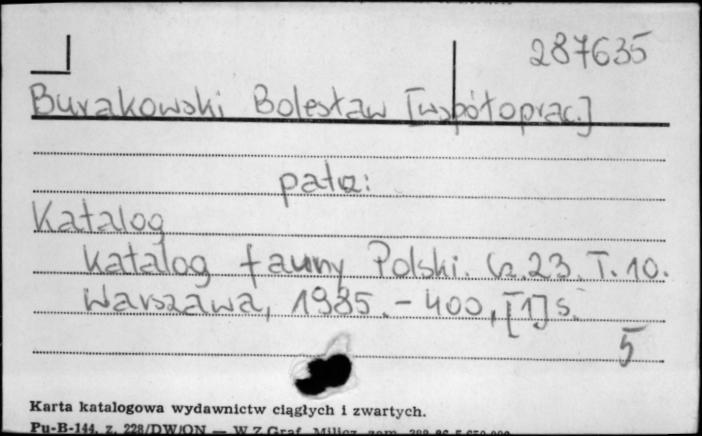 287635
Burakowski Bolesław [współoprac.]
patrz:
Katalog
Katalog fauny Polski. Cz. 23. T. 10.
Warszawa, 1985. - 400, [1] s.
5
Karta katalogowa wydawnictw ciągłych i zwartych.
Pu-B-144, z. 228/DW/ON — W.Z.Graf. Milicz, zam.